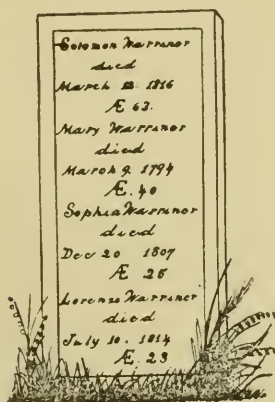 Solomon Warriner
died
March 1816
Æ 63.
Mary Warriner
died
March 9. 1794
Æ. 40
Sophia Warriner
died
Dec 20 1807
Æ 25
Lorenzo Warriner
died
July 10. 1814
Æ. 23